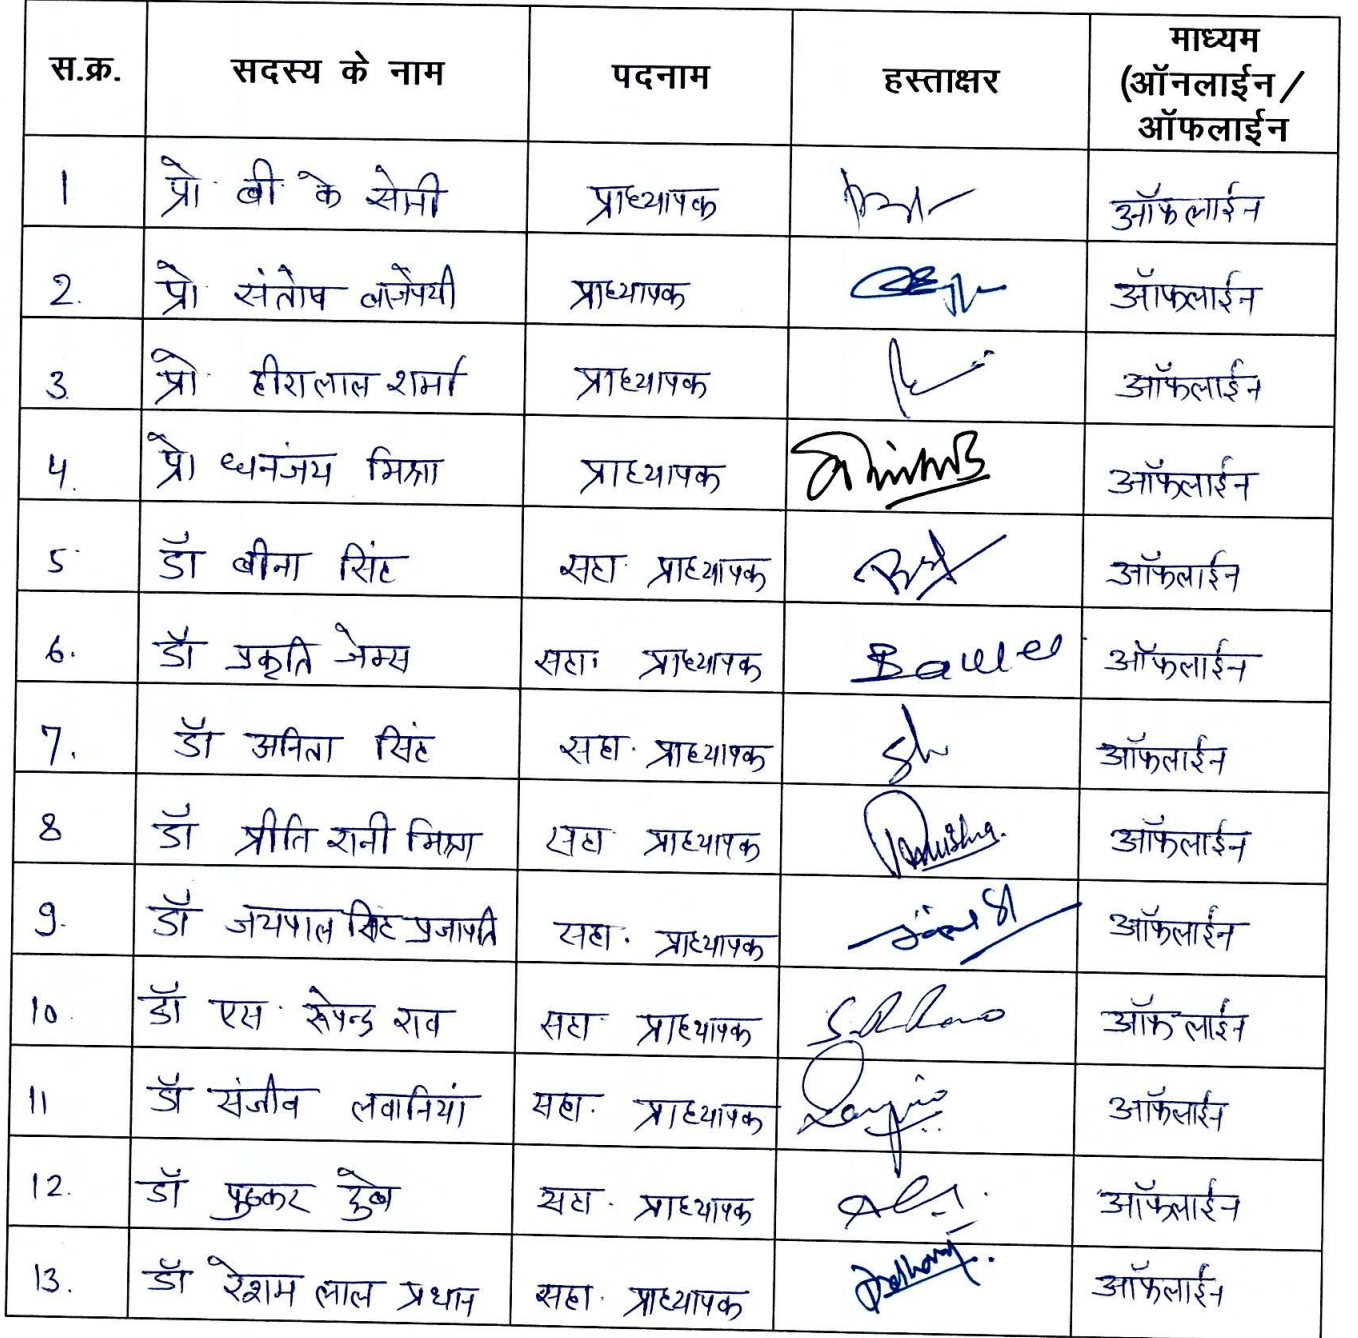 स.क्र. सदस्य के नाम पदनाम हस्ताक्षर माध्यम (ऑनलाईन / ऑफलाईन
1 प्रो. बी. के सोनी प्राध्यापक ऑफलाईन
2. प्रो. संतोष बाजेपयी प्राध्यापक ऑफलाईन
3. प्रो. हीरालाल शर्मा प्राध्यापक ऑफलाईन
4. प्रो धनंजय मिश्रा प्राध्यापक ऑफलाईन
5. डॉ बीना सिंह सहा. प्राध्यापक ऑफलाईन
6. डॉ प्रकृति जेम्स सहा. प्राध्यापक ऑफलाईन
7. डॉ अनिता सिंह सहा. प्राध्यापक ऑफलाईन
8 डॉ प्रीति रानी मिश्रा सहा प्राध्यापक ऑफलाईन
9. डॉ जयपाल सिंह प्रजापति सहा. प्राध्यापक ऑफलाईन
10. डॉ एस. रूपेन्द्र राव सहा. प्राध्यापक S.R.Rao ऑफलाईन
11 डॉ संजीव लवानियां सहा. प्राध्यापक ऑफलाईन
12. डॉ पुष्कर दुबे सहा. प्राध्यापक ऑफलाईन
13. डॉ रेशम लाल प्रधान सहा. प्राध्यापक ऑफलाईन